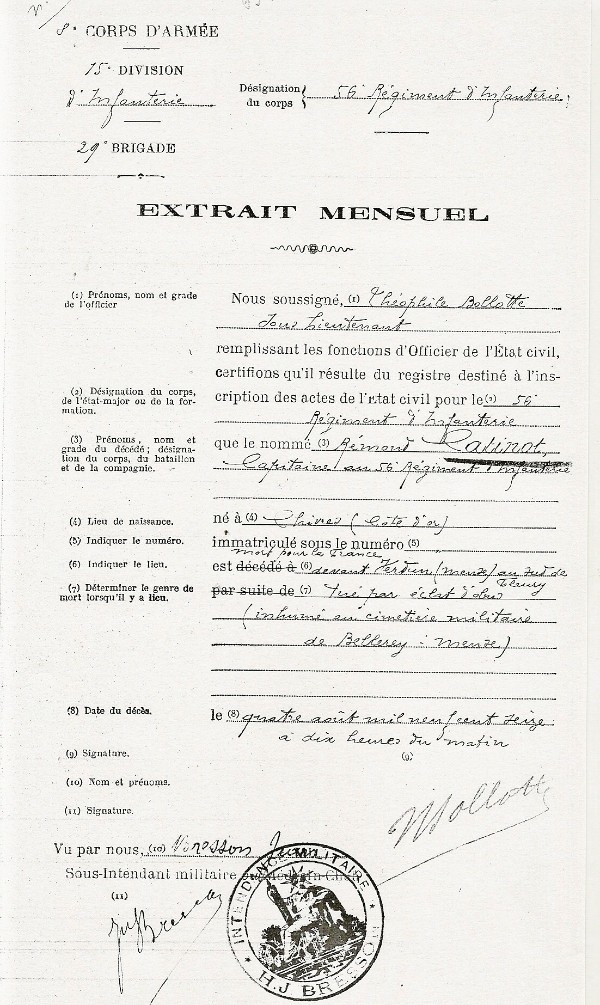 8e CORPS D'ARMÉE
15e DIVISION
d'Infanterie
Désignation du corps } 56e Régiment d'Infanterie
29e BRIGADE
EXTRAIT MENSUEL
(1) Prénoms, nom et grade de l'officier
Nous soussigné, (1) Théophile Bollotte
Sous Lieutenant
remplissant les fonctions d'Officier de l'État civil,
certifions qu'il résulte du registre destiné à l'ins-
(2) Désignation du corps, de l'état-major ou de la formation.
cription des actes de l'Etat civil pour le (2) 56e
Régiment d'Infanterie
(3) Prénoms, nom et grade du décédé; désignation du corps, du bataillon et de la compagnie.
que le nommé (3) Rémond
Capitaine au 56e Régiment d'Infanterie
(4) Lieu de naissance.
né à (4) (Côte d'or)
(5) Indiquer le numéro.
immatriculé sous le numéro (5)
mort pour la France
(6) Indiquer le lieu.
est décédé à (6) devant Verdun (Meuse) au sud de
Fleury
(7) Déterminer le genre de mort lorsqu'il y a lieu.
par suite de (7) Tué par éclat d'obus
(inhumé au cimetière militaire
de Bellerey - Meuse)
(8) Date du décès.
le (8) quatre août mil neuf cent seize
à dix heures du matin
(9) Signature.
(9)
(10) Nom et prénoms.
(11) Signature.
Bollotte
Vu par nous, (10) Bresson
Sous-Intendant militaire
(11)
INTENDANCE MILITAIRE
H. J. BRESSON